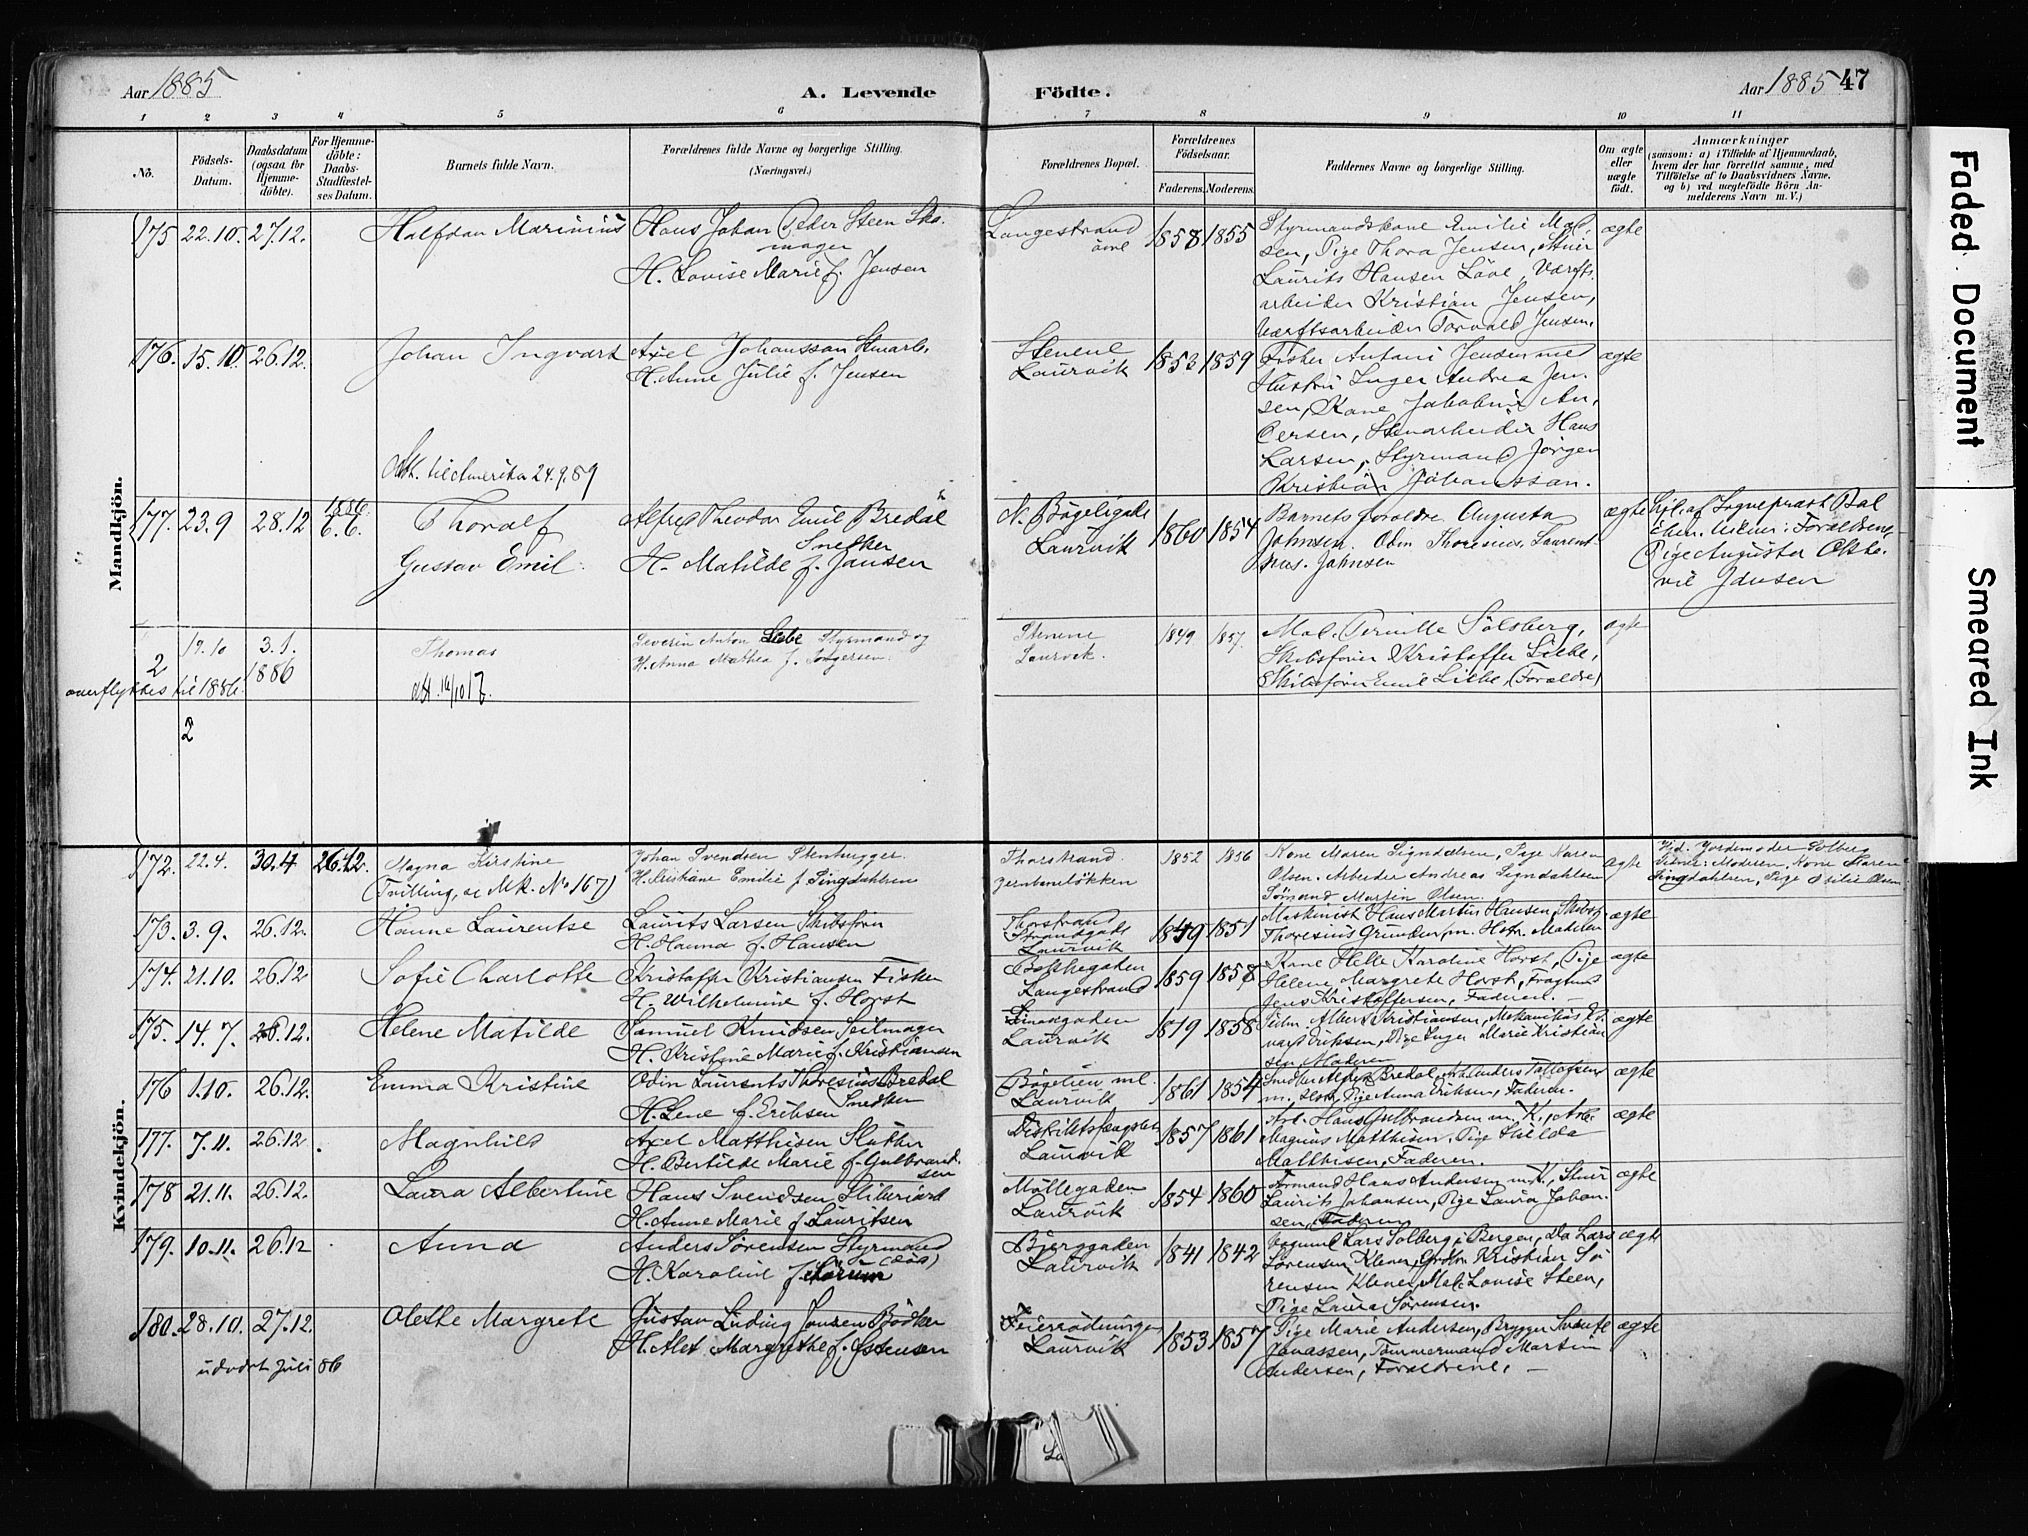 Aar 1885
A. Levende
Födte.
Aar 1885 47
1 2 3 4 5 6 7 8 9 10 11
No.
Födsels-Datum.
Daabsdatum (ogsaa for Hjemme-döbte).
For Hjemme-döbte: Daabs-Stadfæstel-ses Datum.
Barnets fulde Navn.
Forældrenes fulde Navne og borgerlige Stilling.
(Næringsvei.)
Forældrenes Bopæl.
Forældrenes Födselsaar.
Faderens. Moderens.
Faddernes Navne og borgerlige Stilling.
Om ægte eller uægte födt.
Anmærkninger
(saasom: a) i Tilfælde af Hjemmedaab, hvem der har forrettet samme, med Tilföielse af to Daabsvidners Navne, og b) ved uægtefödte Börn Anmelderens Navn m. V.)
Mandkjön.
175 22.10. 27.12. Halfdan Marinius Hans Johan Peder Steen Sko-
mager
H. Lovise Marie f. Jensen
Langestrand
övre
1858 1855
Styrmandskone Emilie Mal-
sen, Pige Thora Jensen, Stuer
Laurits Hansen Löve, Værfts-
arbeider Kristian Jensen,
Værftsarbeider Torvald Jensen.
ægte
176. 15.10. 26.12. Johan Ingvart Axel Johansson Stenarb.
H. Anne Julie f. Jensen
Stenene
Laurvik
1853 1859
Fisker Antoni Jensen med
Hustru Inger Andrea Jen-
sen, Kone Jakobine An-
dersen, Stenarbeider Hans
Larsen, Styrmand Jörgen
Kristian Johansson.
ægte
Att. til Amerika 24.9.89
177. 23.9 28.12 1886 6.6. Thoralf
Gustav Emil
Alfred Theodor Emil Bredal
Snedker
H. Matilde f. Jansen
N. Bögeligade
Laurvik
1860 1854
Barnets foreldre Augusta
Johnsen. Odin Thoresius. Laurent-
sius. Johnsen
ægte
Hjd. af Sognepræst Dal
Vidner: Forældrene,
Pige Augusta Oktavie
Jansen
2 19.10 3.1.
1886
overflyttes til 1886.
2
Thomas
att. 14/10 17
Severin Anton Liebe Styrmand og
H. Anna Mathea f. Jörgensen
Stenene
Laurvik.
1849 1857.
Mad. Pernille Sölsberg,
Skibsförer Kristoffer Liebe,
Skibsförer Emil Liebe, (Forældre)
ægte
Kvindekjön.
172. 22.4. 30.4 26.12. Magna Kirstine
(Tvilling, se Mk. No 167)
Johan Svendsen Stenhugger.
H. Kristiane Emilie f. Singdahlsen
Thorstrand
Jernbanelökken
1852 1856
Kone Maren Signdalsen, Pige Karen
Olsen. Arbeider Andreas Signdahlsen
Sömand Martin Olsen.
ægte
Hjd. Jordemoder Solberg
Vidner: Moderen, Kone Maren
Singdahlsen, Pige Osilie Olsen
173. 3.9. 26.12. Hanne Laurentse Laurits Larsen Skibsförer
H. Hanna f. Hansen
Thorstrand
Strandgade
Laurvik
1849 1851
Maskinist Hans Martin Hansen, Skibsf.
Thoresius Grunden m. Hstr. Matilde
ægte
174. 21.10. 26.12 Sofie Charlotte Kristoffer Kristiansen Fisker
H. Wilhelmine f. Horst
Bakkegaden
Langestrand
1859 1858
Kone Helle Karoline Horst, Pige
Helene Margrete Horst, Fragtmd
Jens Kristoffersen, Faderen.
ægte
175. 14.7. 26.12. Helene Matilde Samuel Knudsen Seilmager
H. Kristine Marie f. Kristiansen
Laurvik
1819 1858
Albert Kristiansen, Mekanikus Ed-
vard Eriksen, Pige Inger Marie Kristian
sen Moderen
ægte
176 1.10. 26.12. Emma Kristine Odin Laurents Thoresius Bredal
Snedker
H. Lene f. Eriksen
Bögelien ml.
Laurvik
1861 1854
Snedker Alfred Bredal, Arb. Anders Tollofsen
m. Hstr, Pige Anna Eriksen, Faderen.
ægte
177. 7.11. 26.12 Magnhild Axel Matthisen Slutter
H. Bertilde Marie f. Gulbrand-
sen
Distriktsfængslet
Laurvik
1857 1861
Arb. Hans Gulbrandsen m. K., Arb.
Magnus Matthisen. Pige Hilda
Matthisen, Faderen.
ægte
178 21.11. 26.12. Laura Albertine Hans Svendsen Stiberiarb
H. Anne Marie f. Lauritsen
Möllegaden
Laurvik
1854 1860
Formand Hans Andersen m. K., Stuer
Laurits Johansen, Pige Laura Johan-
sen, Faderen
ægte
179. 10.11. 26.12 Anna Anders Sörensen Styrmand
(död)
H. Karoline f.
Bjerggaden
Laurvik
1841 1842
Lars Solberg i Bergen, Lars
Sörensen Klever, Kristian Sö-
rensen Klever, Mad. Lovise Steen,
Pige Laura Sörensen.
ægte
180. 28.10. 27.12. Olette Margrete Gustav Luding Jonsen Bödker
H. Alet Margrethe f. Estensen
Laurvik
1853 1857
Pige Marie Andersen, Brygger Svante
Jonassen, Tömmermand Martin
Andersen, Forældrene.
ægte
udvdrt Juli 86
Faded Document
Smeared Ink